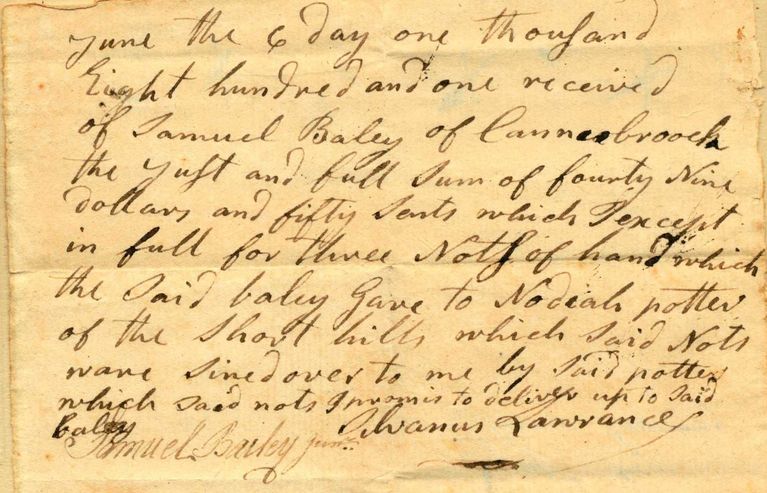 yune the 6 day one thousand
Eight hundred and one received
of Samuel Baley of Cannosbroock
the yust and full Sum of fourty Nine
dollars and fifty Sents which I except
in full for three Nots of hand which
the Said baley Gave to Nodeah potter
of the Short hills which Said Nots
ware Sined over to me by Said potter
which Said nots I promis to deliver up to Said
baley Silvanus Lawrance
Samuel Bailey junr